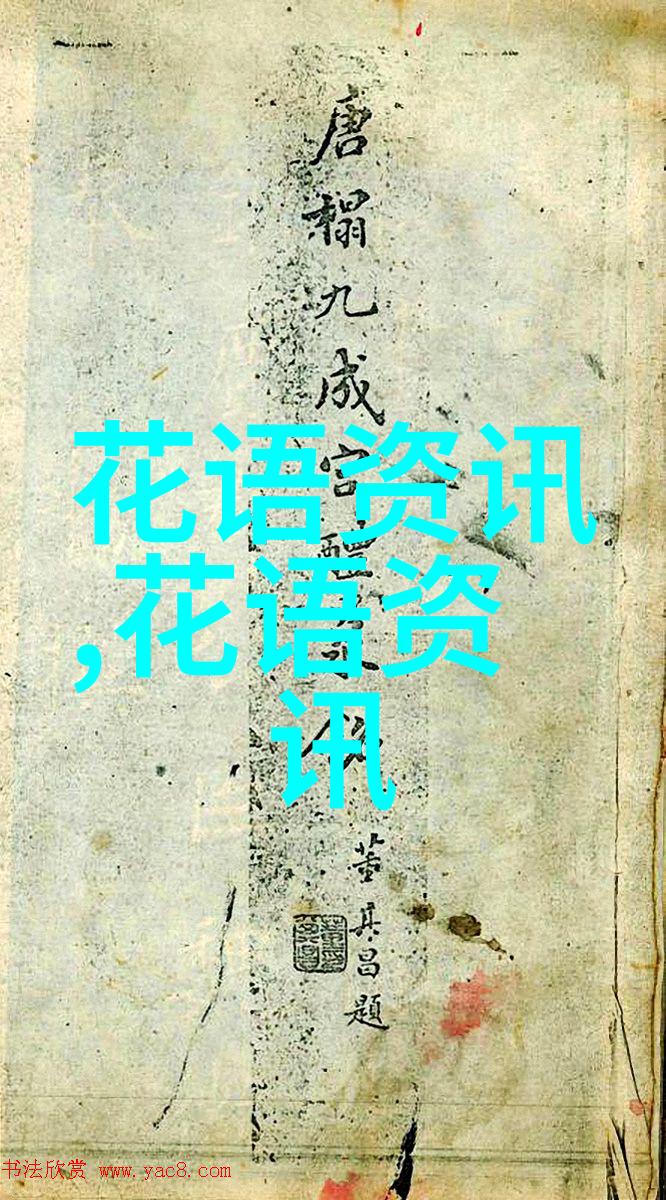 唐榻九成宮醴泉銘
董其昌題
花语资讯
,花语资
讯
书法欣赏 www.yac8.com